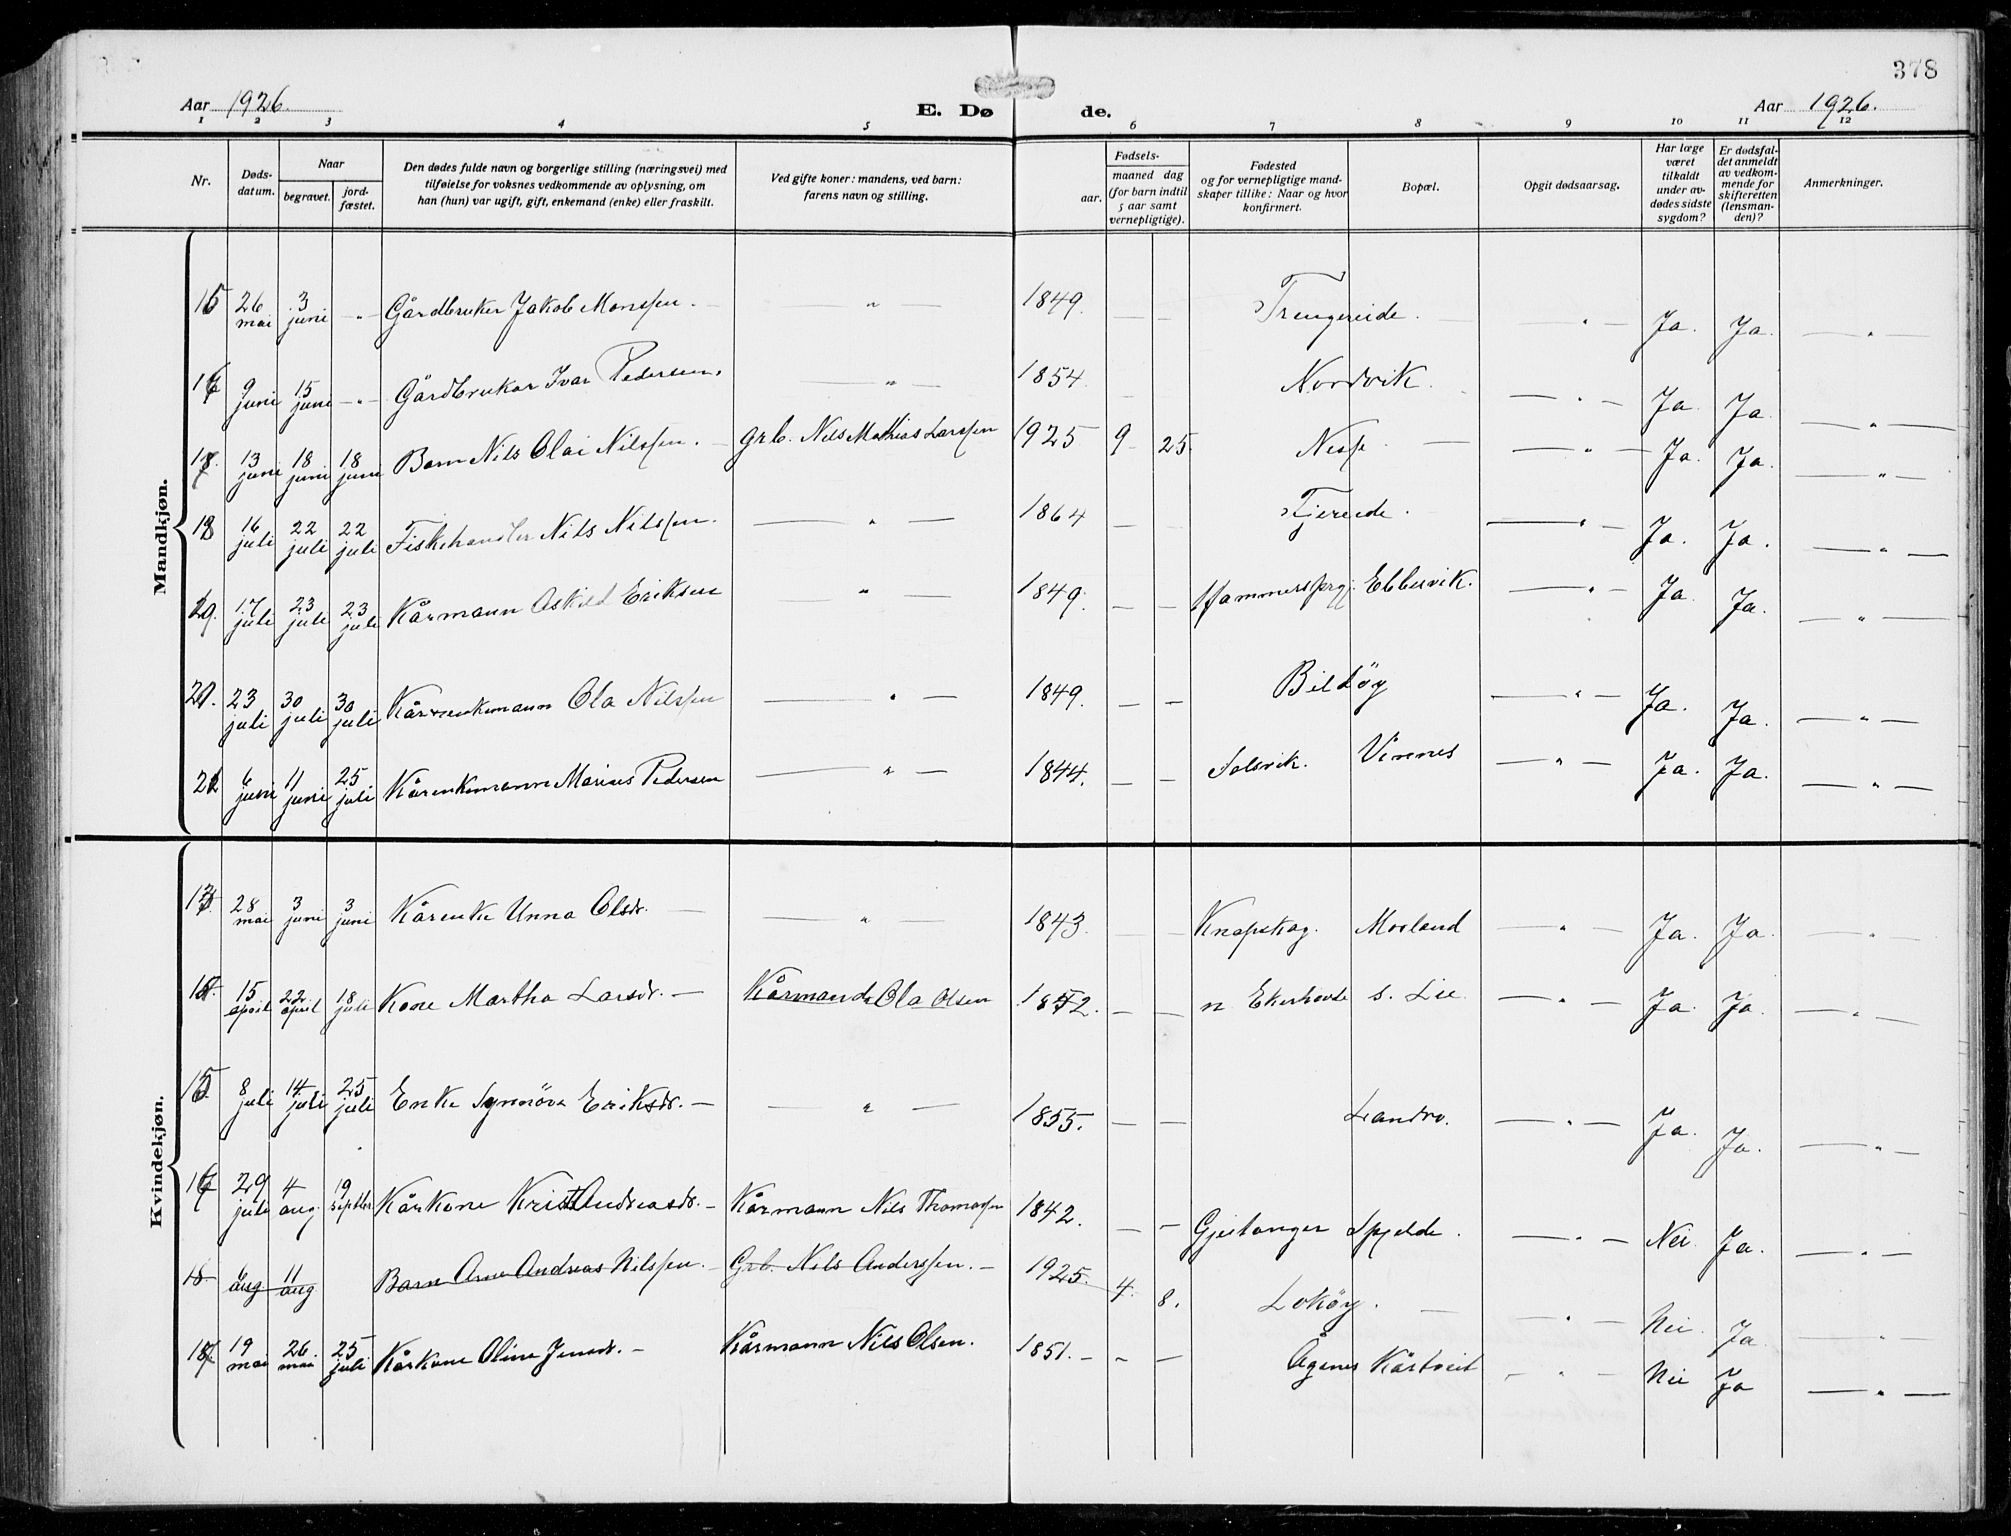 378
Aar 1926. E. Dø de. Aar 1926.
1 2 3 4 5 6 7 8 9 10 11 12
Nr.
Døds-
datum.
Naar
begravet.
jord-
fæstet.
Den dødes fulde navn og borgerlige stilling (næringsvei) med
tilføielse for voksnes vedkommende av oplysning, om
han (hun) var ugift, gift, enkemand (enke) eller fraskilt.
Ved gifte koner: mandens, ved barn:
farens navn og stilling.
aar.
Fødsels-
maaned dag
(for barn indtil
5 aar samt
vernepligtige).
Fødested
og for vernepligtige mand-
skaper tillike: Naar og hvor
konfirmert.
Bopæl.
Opgit dødsaarsag.
Har læge
været
tilkaldt
under av-
dødes sidste
sygdom?
Er dødsfal-
det anmeldt
av vedkom-
mende for
skifteretten
(lensman-
den)?
Anmerkninger.
Mandkjøn.
15 26 mai 3 juni - " - Gårdbruker Jakob Monssen. - " - 1849. — — Trengereide. — " — Ja. Ja. — " —
16 9 juni 15 juni - " - Gårdbruker Ivar Pedersen. — " — 1854. — Nordvik. — " — Ja. Ja. — " —
17. 13 juni 18 juni 18 juni Barn Nils Olai Nilssen. — Grb. Nils Mathias Larssen 1925 9 25. Nesse. — — " — Ja. Ja. — " —
18 16 juli 22 juli 22 juli Fiskehandler Nils Nilssen. — " — 1864 — — Tjereide. — " — Ja. Ja. — " —
19. 17 juli 23 juli 23 juli Kårmann Askild Eriksen — " — 1849. — — Hammersprg. Ebbesvik. — " — Ja. Ja. — " —
20. 23 juli 30 juli 30 juli Kårenkemann Ola Nilssen — " — 1849. — — Bildøy — " — Ja. Ja. — " —
21 6 juni 11 juni 25 juli Kårenkemann Marius Pedersen — " — 1844. — — Solsvik. Vinnes — " — Ja. Ja. — " —
Kvindekjøn.
13. 28 mai 3 juni 3 juni Kårenke Unna Olsdr. — — " — 1843. — — Knapskog. Morland — " — Ja. Ja. — " —
14. 15 april 22 april 18 juli Kone Martha Larsdr. — Kårmand Ola Olsen 1852. — — n. Ekerhovde s. Lie — " — Ja. Ja. — " —
15. 8 juli 14 juli 25 juli Enke Synnöva Eriksdr. — — " — 1855. — — Landro. — " — Ja. Ja. — " —
16 29 juli 4 aug. 19 septbr. Kårkone Krist Andreasdr. — Kårmann Nils Thomassen 1842. — — Gjeitanger Spjelde. — " — Nei. Ja. — " —
18 6 aug. 11 aug Barn Arne Andreas Nilssen. — Grb. Nils Anderssen. — 1925. 4. 8. Lokøy. — — " — Nei. Ja. — " —
17 19 mai 26 mai 25 juli Kårkone Oline Jensdr. — Kårmann Nils Olsen. 1851. — — — Ågenes Kårtveit — " — Nei Ja — " —